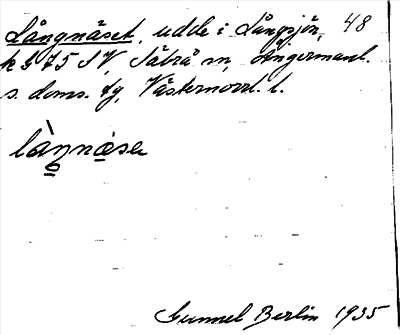 Långnäset, udde i Långsjön, 48
k 375 SV, Säbrå sn, Ångermanl.
s. doms. fg, Västernorrl. l.
làŋnäse
Gunnel Berlin 1935